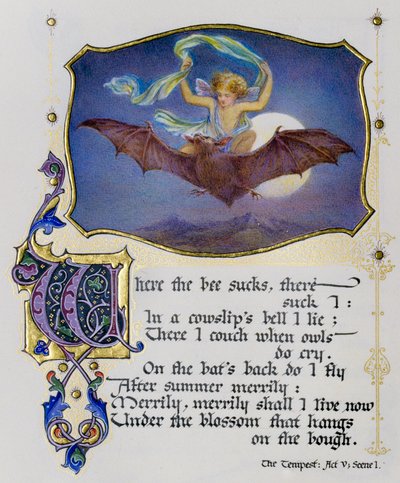 Where the bee sucks, there
suck I :
In a cowslip's bell I lie ;
There I couch when owls
do cry.
On the bat's back do I fly
After summer merrily :
Merrily, merrily shall I live now
Under the blossom that hangs
on the bough.
The Tempest: Act V; Scene I.